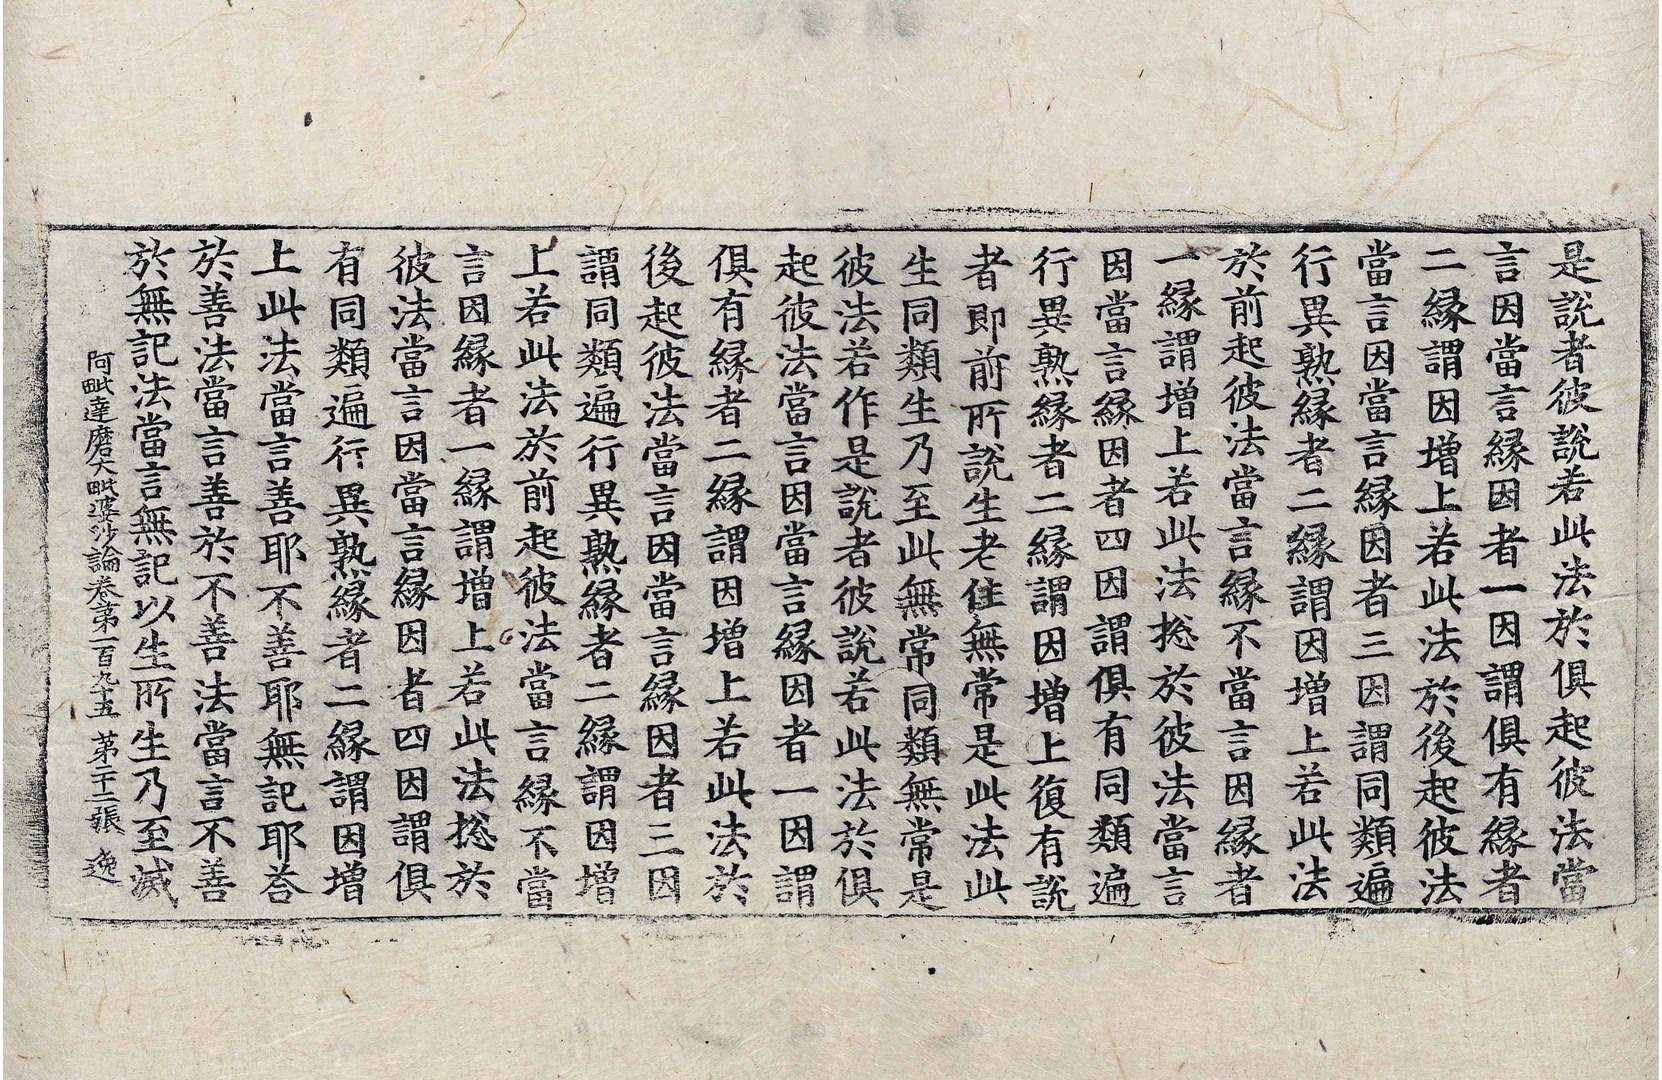 是說者彼說若此法於俱起彼法當
言因當言縁因者一因謂俱有縁者
二縁謂因增上若此法於後起彼法
當言因當言縁因者三因謂同類遍
行異熟縁者二縁謂因增上若此法
於前起彼法當言縁不當言因縁者
一縁謂增上若此法捴於彼法當言
因當言縁因者四因謂俱有同類遍
行異熟縁者二縁謂因增上復有說
者即前所說生老住無常是此法此
生同類生乃至此無常同類無常是
彼法若作是說者彼說若此法於俱
起彼法當言因當言縁因者一因謂
俱有縁者二縁謂因增上若此法於
後起彼法當言因當言縁因者三因
謂同類遍行異熟縁者二縁謂因增
上若此法於前起彼法當言縁不當
言因縁者一縁謂增上若此法捴於
彼法當言因當言縁因者四因謂俱
有同類遍行異熟縁者二縁謂因增
上此法當言善耶不善耶無記耶荅
於善法當言善於不善法當言不善
於無記法當言無記以生所生乃至滅
阿毗達磨大毗婆沙論卷第一百九十五 第二十二張 逸